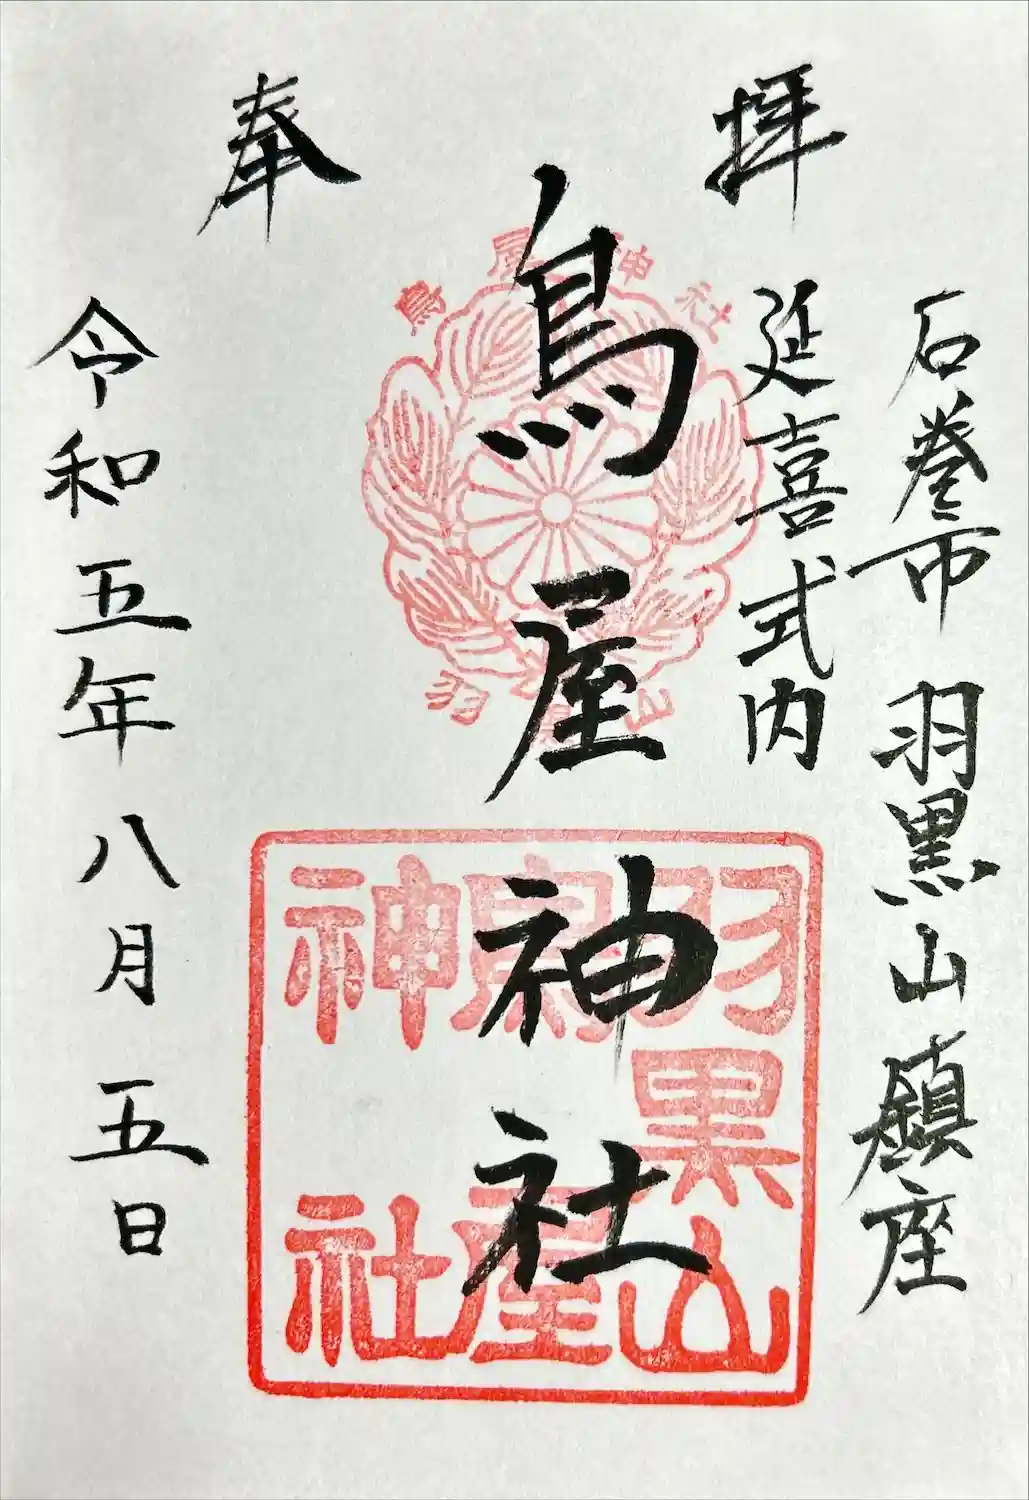 奉拝
石巻市 羽黒山鎮座
延喜式内
鳥屋神社
令和五年八月五日
鳥屋神社
羽黒山
羽黒山
鳥屋
神社